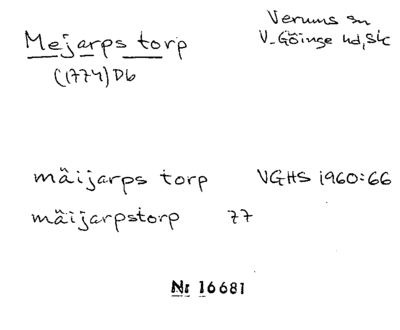 Mejarps torp
(1774) Db
Verums sn
V-Göinge hd, Sk
mäijarps torp VGHS 1960:66
mäijarpstorp 77
Nr 16681